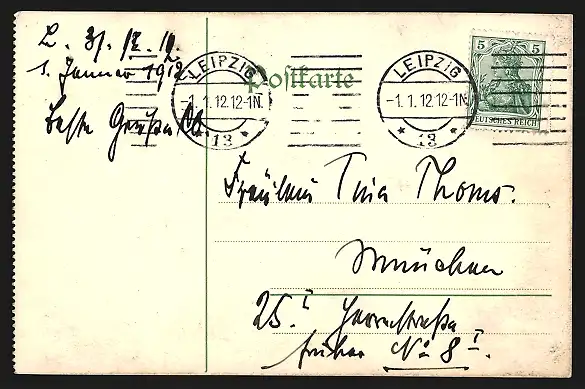 L. 31. XII. 12.
1. Januar 1912
beste Grüße
Postkarte
LEIPZIG
-1.1.12.12-1N.
* 13 *
LEIPZIG
-1.1.12.12-1N.
* 13 *
5 5
DEUTSCHES REICH
Fräulein Tina Thoms.
München
25. I
früher No 8 I.